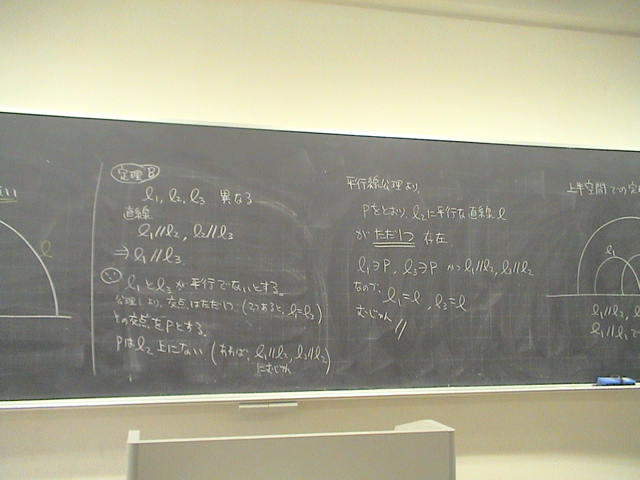 定理B
l₁, l₂, l₃ 異なる
直線
l₁//l₂, l₂//l₃
⇒ l₁//l₃.
∵ l₁とl₃が平行でないとする。
公理1より、交点はただ1つ (2つあると、l₁=l₃)
その交点をPとする。
Pはl₂上にない (あれば、l₁//l₂, l₃//l₂)
にむじゅん
平行線公理より、
Pをとおり、l₂に平行な直線l
がただ1つ存在.
l₁∋P, l₃∋P かつ l₁//l₂, l₃//l₂
なので、
l₁=l, l₃=l
むじゅん //
l
上半空間での定
l₁
l₁//l₂,
l₁//l₂